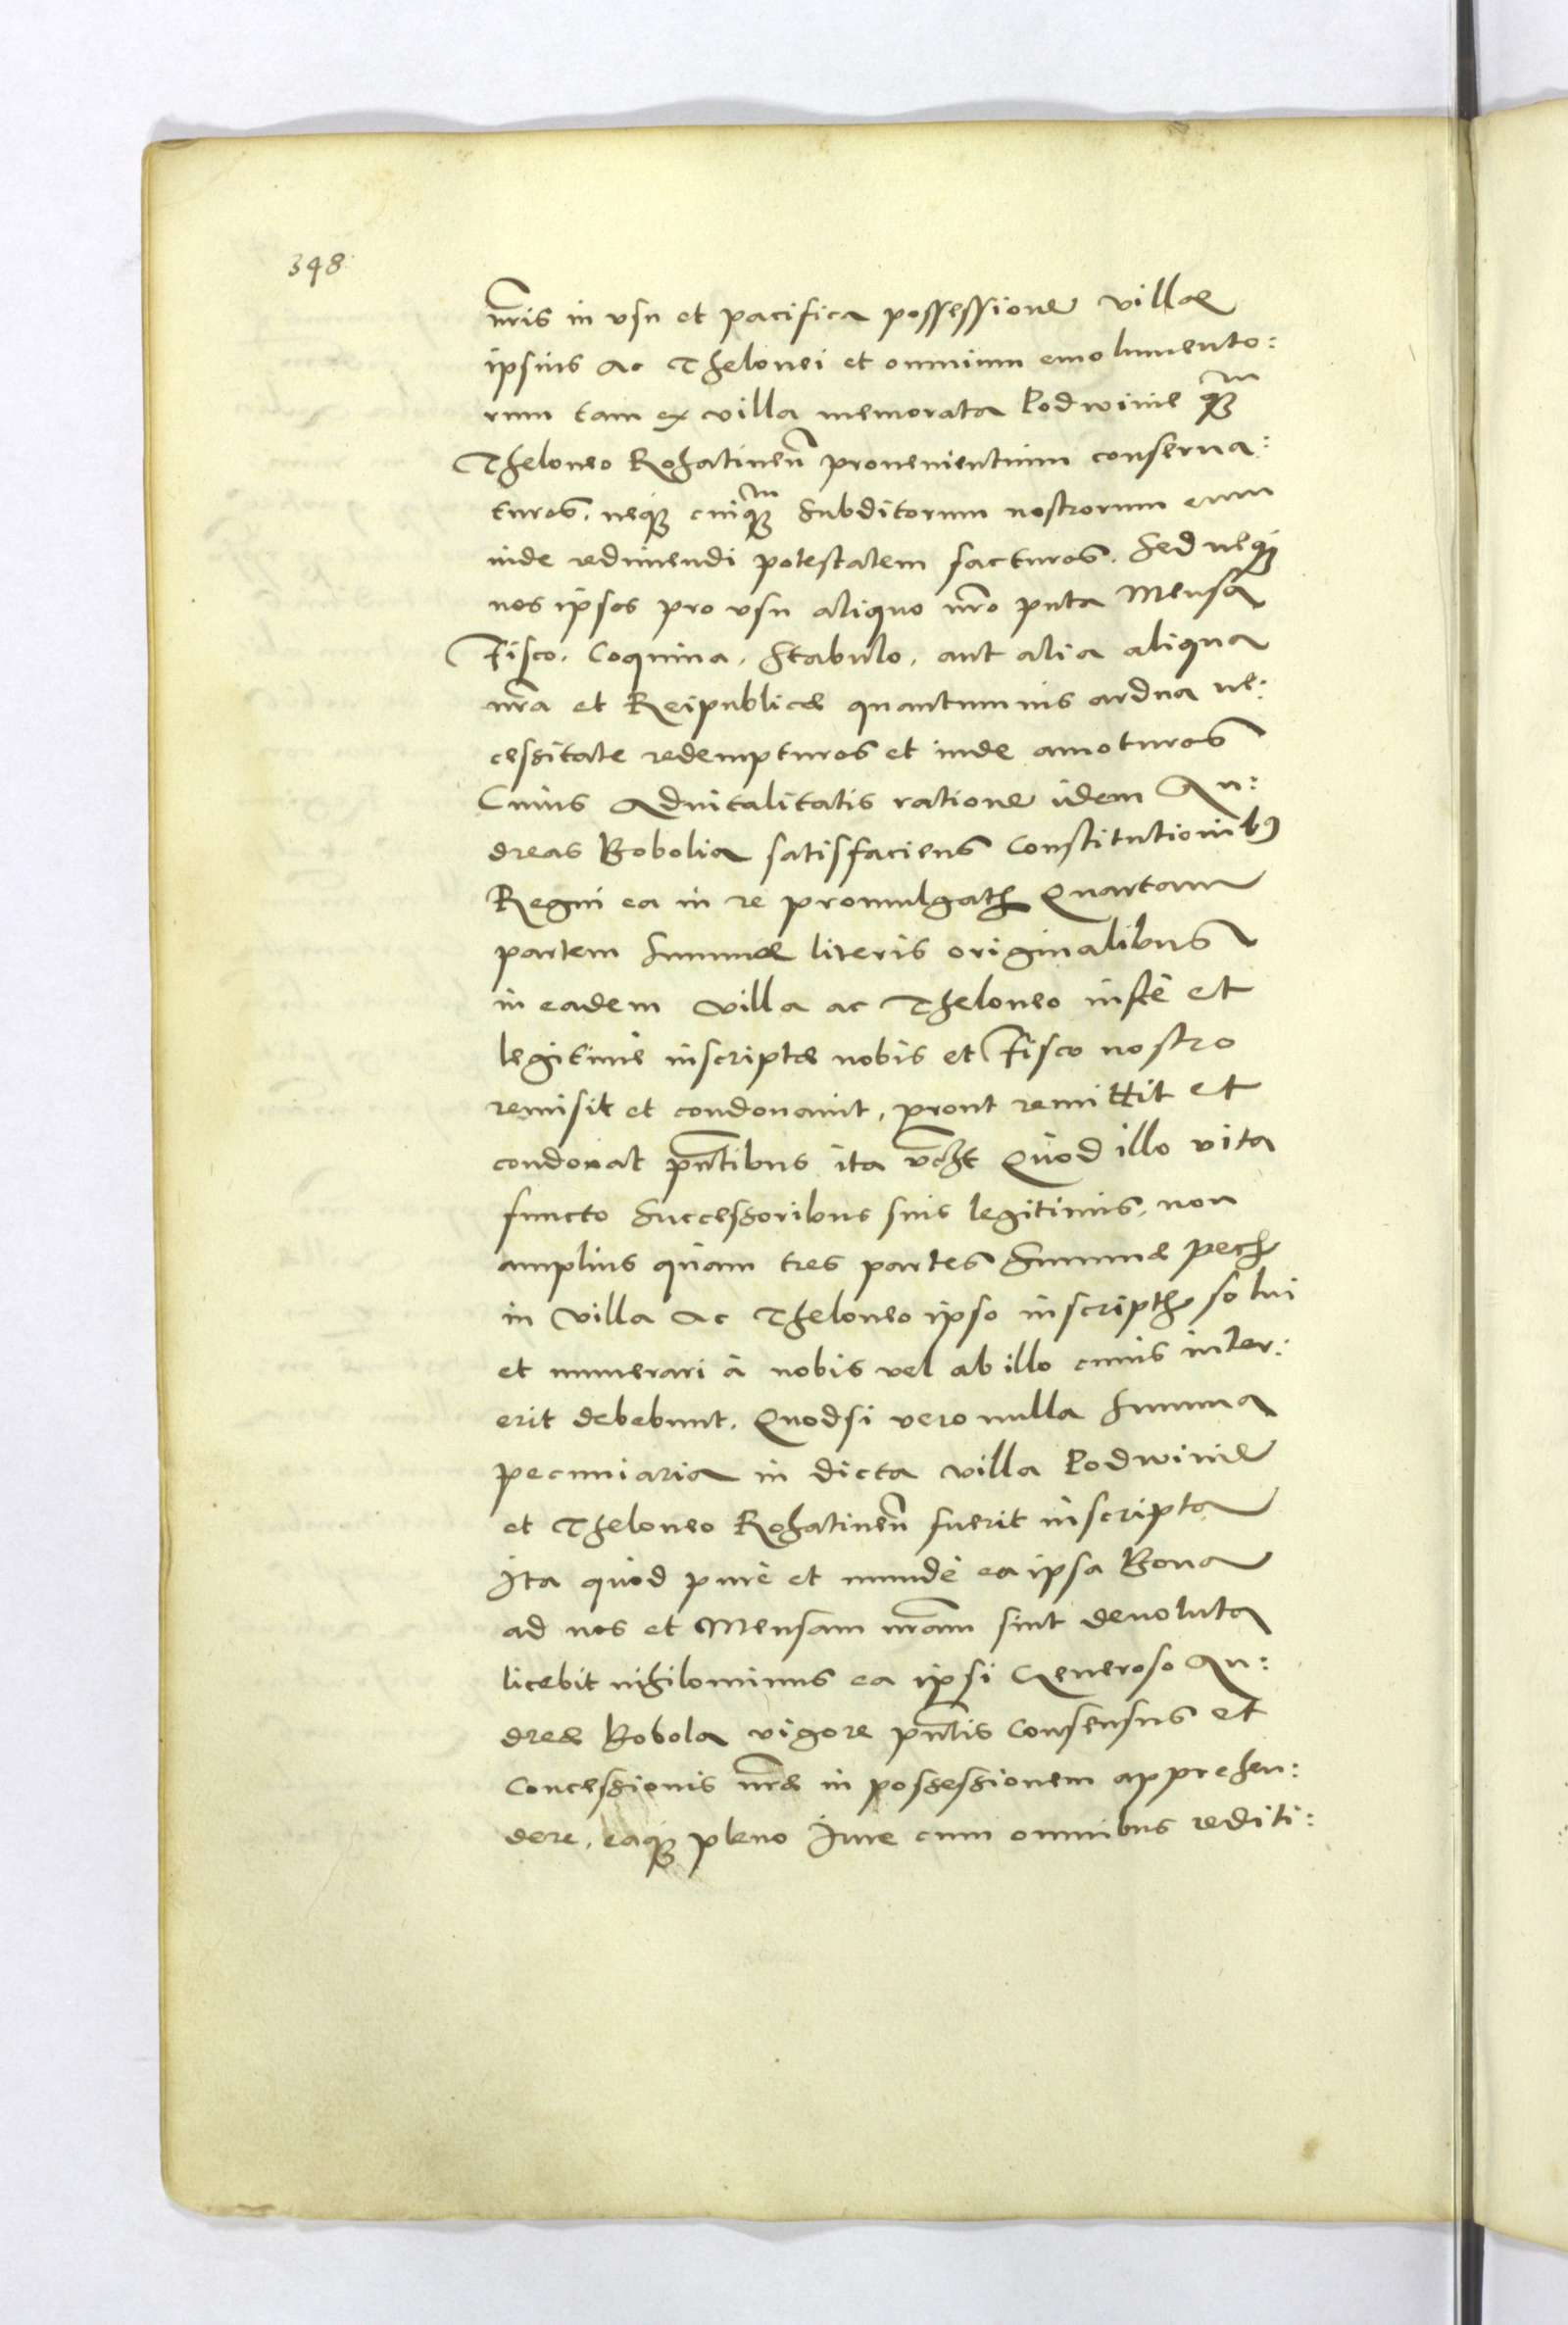 398
nr̃is in vsu et pacifica possessione villæ
ipsius ac Thelonei et omnium emolumento:
rum tam ex villa memorata Podwinie qꝫm
Theloneo Rohatinen̄ prouenientium conserua:
turos. neqꝫ cuiqꝫm Subditorum nostrorum eum
inde redimendi potestatem facturos. Sed neqꝫ
nos ipsos pro vsu aliquo nr̃o puta Mensa
Fisco. Coquina. Stabulo. aut alia aliqua
nr̃a et Reipublicæ quantumuis ardua ne:
cessitate redempturos et inde amoturos
Cuius Aduitalitatis ratione idem An:
dreas Bobolia satisfaciens Constitutionibꝰ
Regni ea in re promulgatꝭ Quartam
partem Summæ literis originalibus
in eadem villa ac Theloneo iustè et
legitimè inscriptæ nobis et Fisco nostro
remisit et condonauit, prout remittit et
condonat pñtibus ita vt̃ Quòd illo vita
functo Successoribus suis legitimis. non
amplius quàm tres partes Summæ pecꝭ
in villa ac Theloneo ipso inscriptꝭ solui
et numerari à nobis vel ab illo cuius inter:
erit debebunt. Quodsi vero nulla Summa
pecuniaria in dicta villa Podwinie
et Theloneo Rohatinen̄ fuerit inscripta
Ita quòd purè et mundè ea ipsa Bona
ad nos et Mensam nr̃am sint deuoluta
licebit nihilominus ea ipsi Generoso An:
dreæ Bobola vigore pñtis Consensus et
Concessionis nr̃æ in possessionem apprehen:
dere, eaqꝫ pleno Iure cum omnibus rediti: